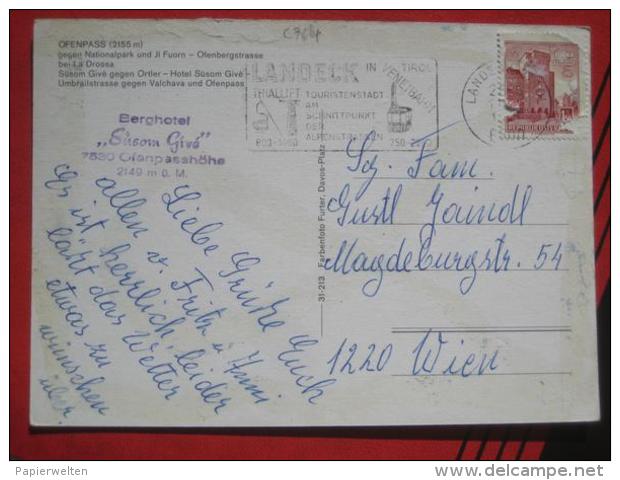 C7614
OFENPASS (2155 m)
gegen Nationalpark und Jl Fuorn – Ofenbergstrasse
bei La Drossa
Süsom Givè gegen Ortler – Hotel Süsom Givè
Umbrailstrasse gegen Valchava und Ofenpass
LANDECK IN TIROL
THIALLIFT
TOURISTENSTADT
AM
SCHNITTPUNKT
DER
ALPENSTRASSEN
VENETBAHN
LANDE
REPUBLIK ÖSTER
Berghotel
„Süsom Givè"
7530 Ofenpasshöhe
2149 m ü. M.
Liebe Grüße Euch
allen v. Fritz u.
Es ist herrlich, leider
läßt das Wetter
etwas zu
wünschen
über.
31-213 Farbenfoto Furter, Davos-Platz
Sg. Fam.
Gustl Gaindl
Magdeburgstr. 54
1220 Wien
Papierwelten
delcampe.net